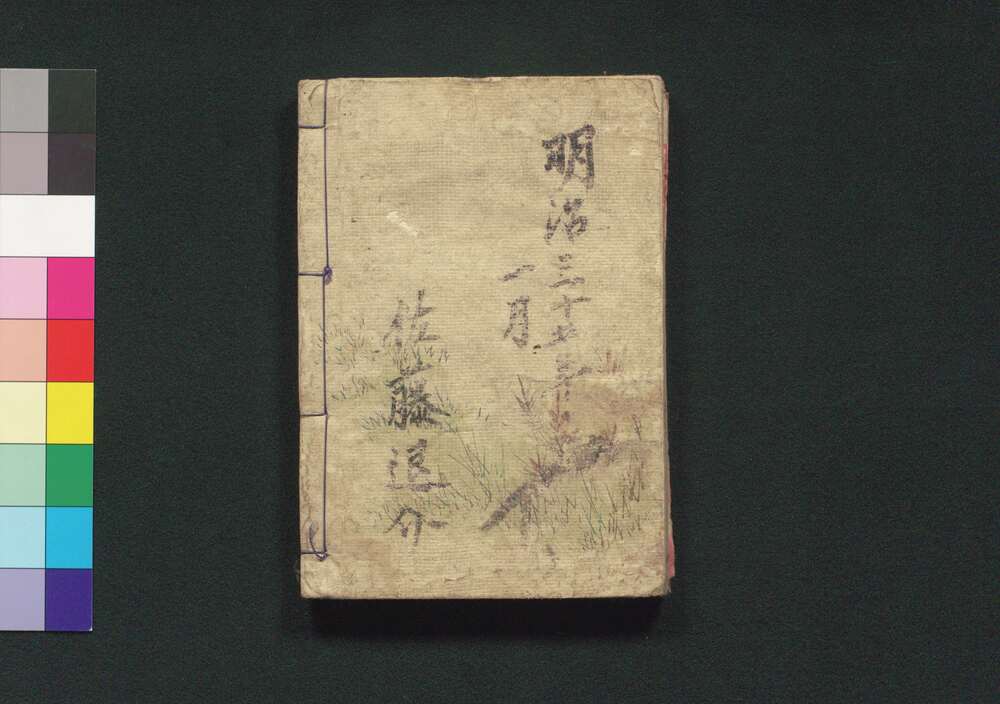 明治三十七年
一月
佐藤退介